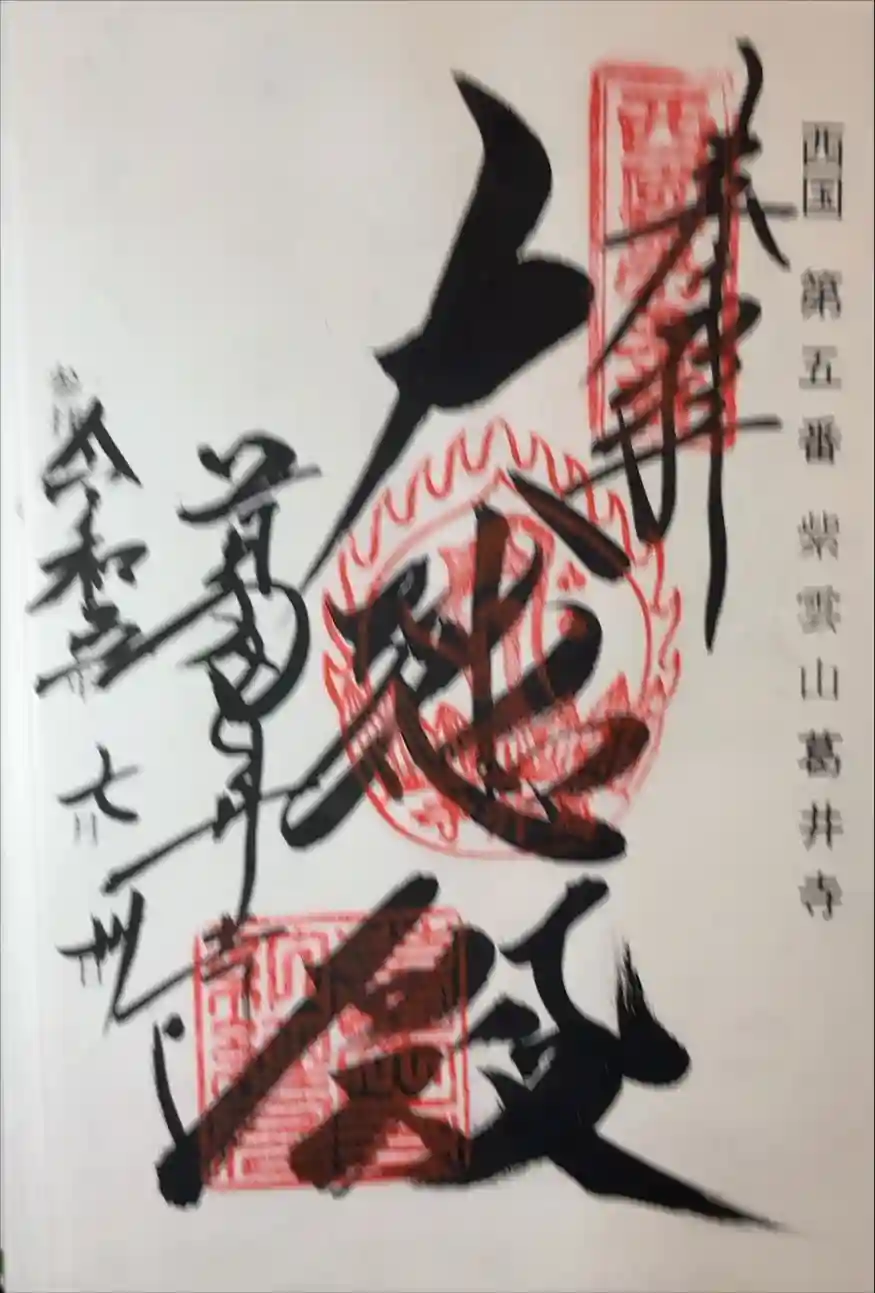 西国 第五番 紫雲山葛井寺
奉拝
大悲殿
葛井寺
令和五年 七月 卅日